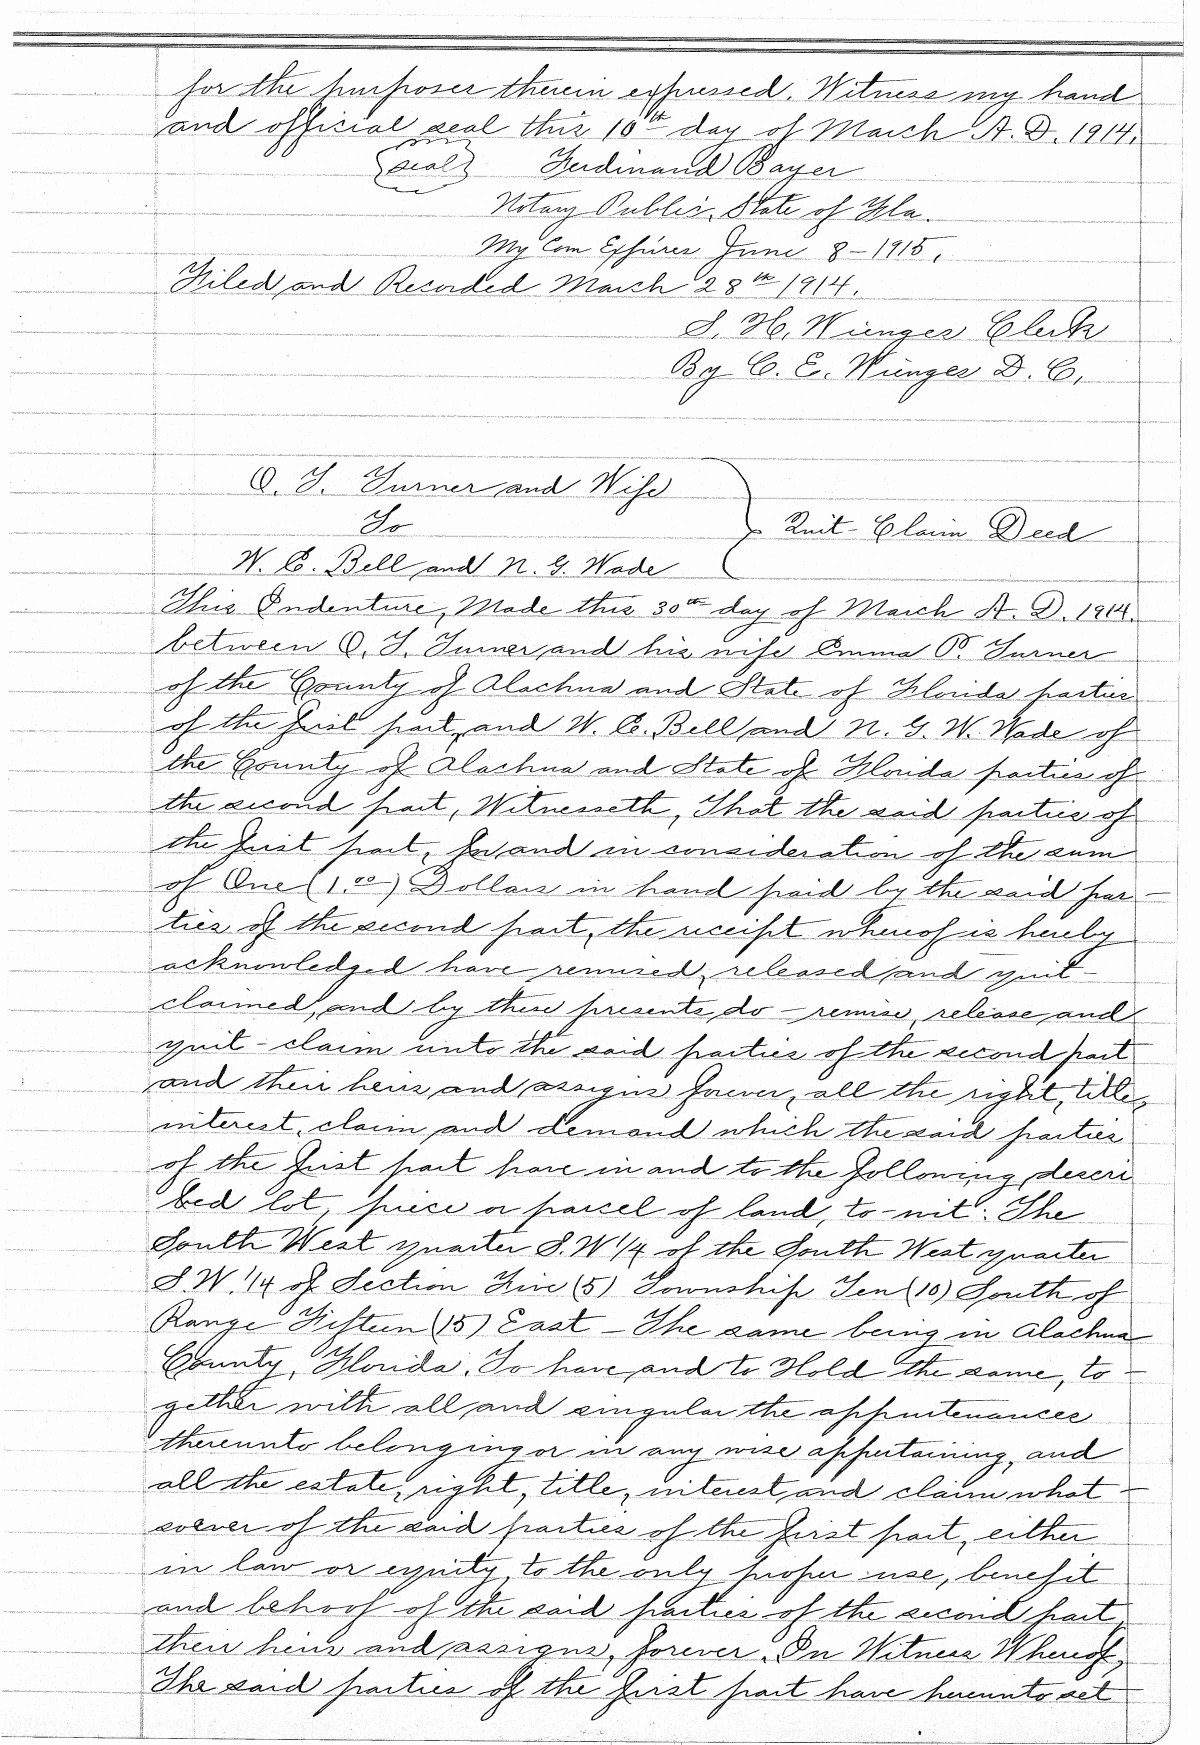 for the purposes therein expressed. Witness my hand
and official seal this 10th day of March A. D. 1914.
seal Ferdinand Bayer
Notary Public, State of Fla.
My Com Expires June 8 - 1915.
Filed and Recorded March 28th 1914.
S. H. Wienges Clerk
By C. E. Wienges D. C.
O. T. Turner and Wife
To
Quit-Claim Deed
W. E. Bell and N. G. Wade
This Indenture, Made this 30th day of March A. D. 1914.
between O. T. Turner and his wife Emma P. Turner
of the County of Alachua and State of Florida parties
of the first part, and W. E. Bell and N. G. W. Wade of
the County of Alachua and State of Florida parties of
the second part, Witnesseth, That the said parties of
the first part, for and in consideration of the sum
of One (1.00) Dollars in hand paid by the said par-
ties of the second part, the receipt whereof is hereby
acknowledged have remised, released and quit-
claimed, and by these presents do - remise, release and
quit - claim unto the said parties of the second part
and their heirs and assigns forever, all the right, title,
interest, claim and demand which the said parties
of the first part have in and to the following descri
bed lot, piece or parcel of land, to-wit: The
South West quarter S.W 1/4 of the South West quarter
S.W. 1/4 of Section Five (5) Township Ten (10) South of
Range Fifteen (15) East - The same being in Alachua
County, Florida. To have and to Hold the same, to-
gether with all and singular the appurtenances
thereunto belonging or in any wise appertaining, and
all the estate, right, title, interest and claim what-
soever of the said parties of the first part, either
in law or equity, to the only proper use, benefit
and behoof of the said parties of the second part,
their heirs and assigns, forever. In Witness Whereof,
The said parties of the first part have hereunto set